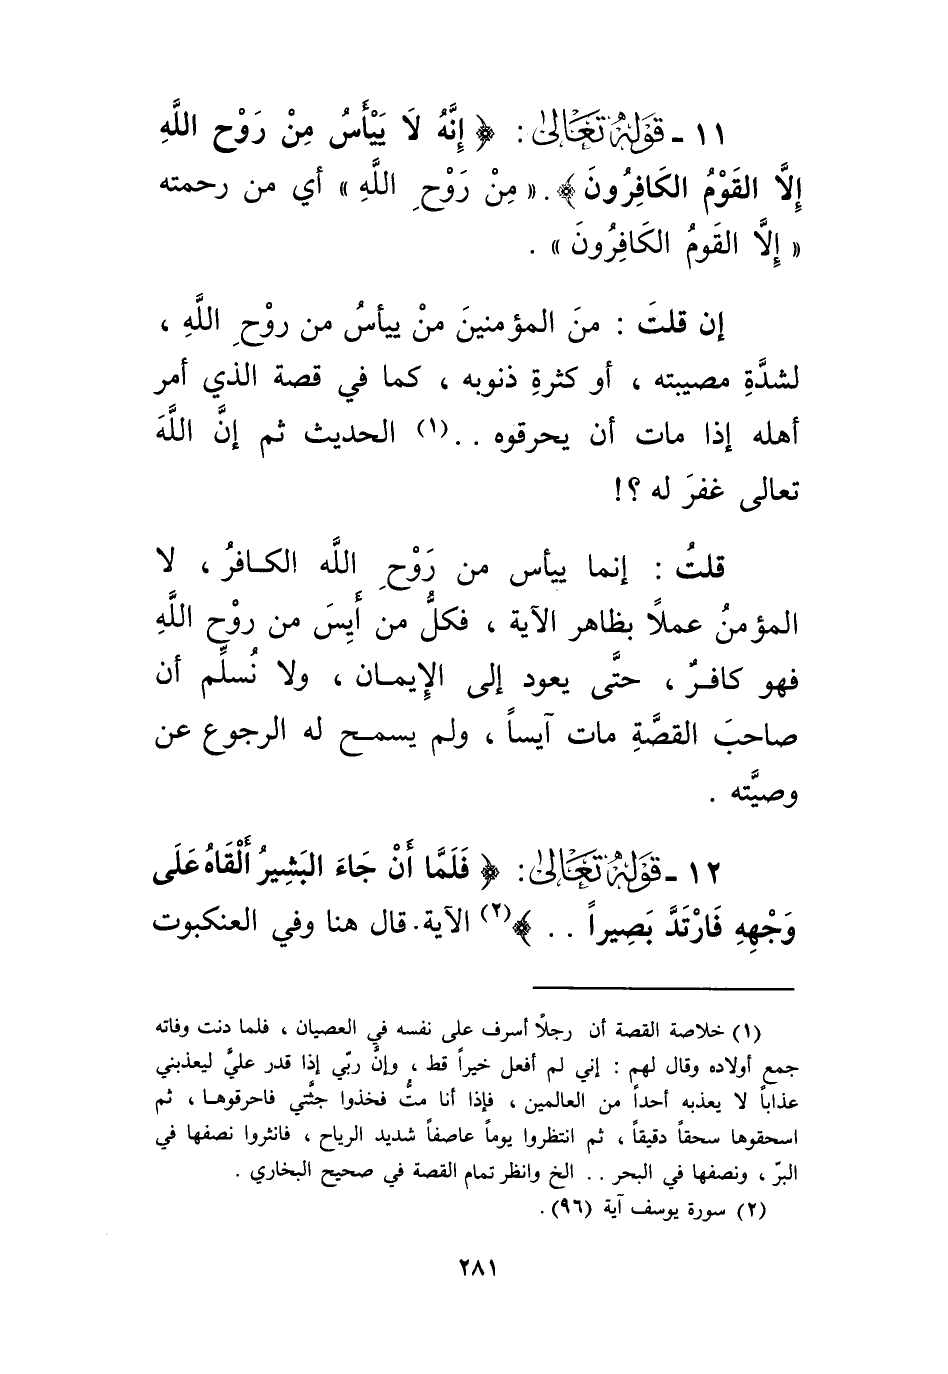 ١١ - قَوْلُهُ تَعَالَىٰ : ﴿ إِنَّهُ لَا يَيْأَسُ مِنْ رَوْحِ اللَّهِ
إِلَّا القَوْمُ الكَافِرُونَ ﴾. « مِنْ رَوْحِ اللَّهِ » أي من رحمته
« إِلَّا القَومُ الكَافِرُونَ » .
إن قلتَ : منَ المؤمنينَ منْ ييأسُ من روْحِ اللَّهِ ،
لشدَّةِ مصيبته ، أو كثرةِ ذنوبه ، كما في قصة الذي أمر
أهله إذا مات أن يحرقوه . .(١) الحديث ثم إنَّ اللَّهَ
تعالى غفرَ له ؟!
قلتُ : إنما ييأس من رَوْحِ اللَّه الكافرُ ، لا
المؤمنُ عملاً بظاهر الآية ، فكلُّ من أَيِسَ من روْحِ اللَّهِ
فهو كافرٌ ، حتَّى يعود إلى الإِيمان ، ولا نُسلِّم أن
صاحبَ القصَّةِ مات آيساً ، ولم يسمح له الرجوع عن
وصيَّته .
١٢ - قَوْلُهُ تَعَالَىٰ : ﴿ فَلَمَّا أَنْ جَاءَ البَشِيرُ أَلْقَاهُ عَلَى
وَجْهِهِ فَارْتَدَّ بَصِيراً . . ﴾(٢) الآية. قال هنا وفي العنكبوت
(١) خلاصة القصة أن رجلًا أسرف على نفسه في العصيان ، فلما دنت وفاته
جمع أولاده وقال لهم : إني لم أفعل خيراً قط ، وإنَّ ربّي إذا قدر عليَّ ليعذبني
عذاباً لا يعذبه أحداً من العالمين ، فإذا أنا متُّ فخذوا جثَّتي فاحرقوها ، ثم
اسحقوها سحقاً دقيقاً ، ثم انتظروا يوماً عاصفاً شديد الرياح ، فانثروا نصفها في
البرّ ، ونصفها في البحر . . الخ وانظر تمام القصة في صحيح البخاري .
(٢) سورة يوسف آية (٩٦) .
٢٨١